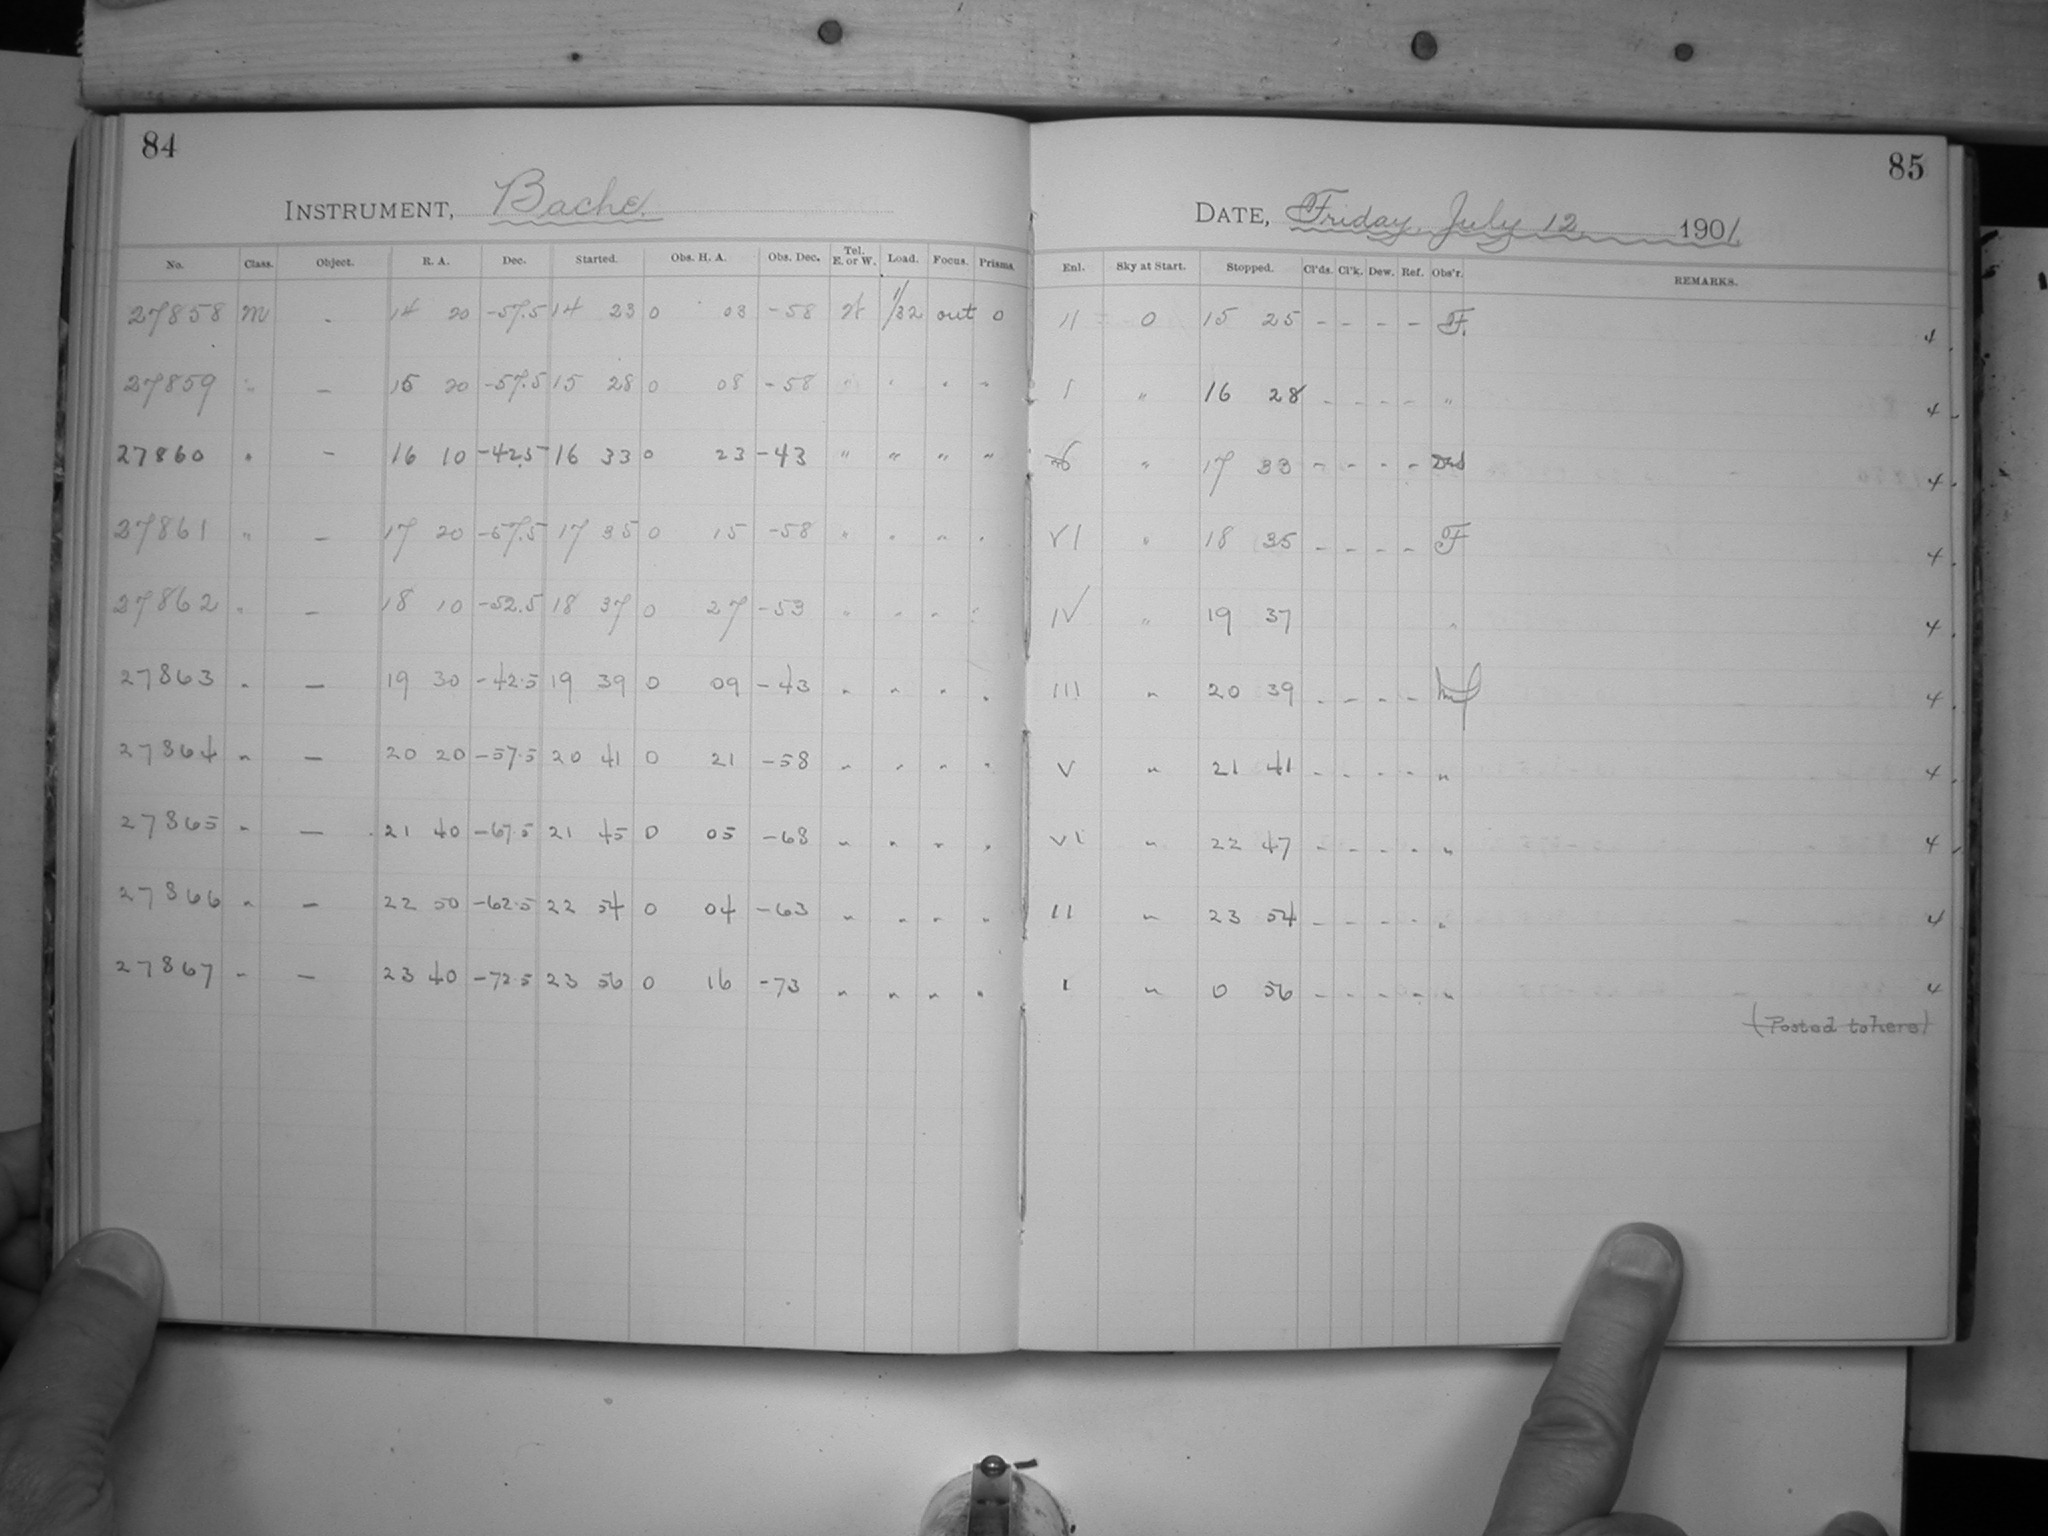 84
85
INSTRUMENT, Bache.
DATE, Friday, July 12, 1901
No. Class. Object. R. A. Dec. Started. Obs. H. A. Obs. Dec. Tel. E. or W. Load. Focus. Prisms. Enl. Sky at Start. Stopped. Cl'ds. Cl'k. Dew. Ref. Obs'r. REMARKS.
27858 m - 14 20 -57.5 14 23 0 03 -58 1/32 out 0 II 0 15 25 - - - - F. 4
27859 " - 15 20 -57.5 15 28 0 08 -58 " " " " I " 16 28 - - - - " 4
27860 " - 16 10 -42.5 16 33 0 23 -43 " " " " " 17 33 - - - - 4
27861 " - 17 20 -57.5 17 35 0 15 -58 " " " " VI " 18 35 - - - - F 4
27862 " - 18 10 -52.5 18 37 0 27 -53 " " " " IV " 19 37 " 4
27863 " - 19 30 -42.5 19 39 0 09 -43 " " " " III " 20 39 - - - - 4
27864 " - 20 20 -57.5 20 41 0 21 -58 " " " " V " 21 41 - - - - " 4
27865 " - 21 40 -67.5 21 45 0 05 -68 " " " " VI " 22 47 - - - - " 4
27866 " - 22 50 -62.5 22 54 0 04 -63 " " " " II " 23 54 - - - - " 4
27867 " - 23 40 -72.5 23 56 0 16 -73 " " " " I " 0 56 - - - - " 4
(Posted to here)